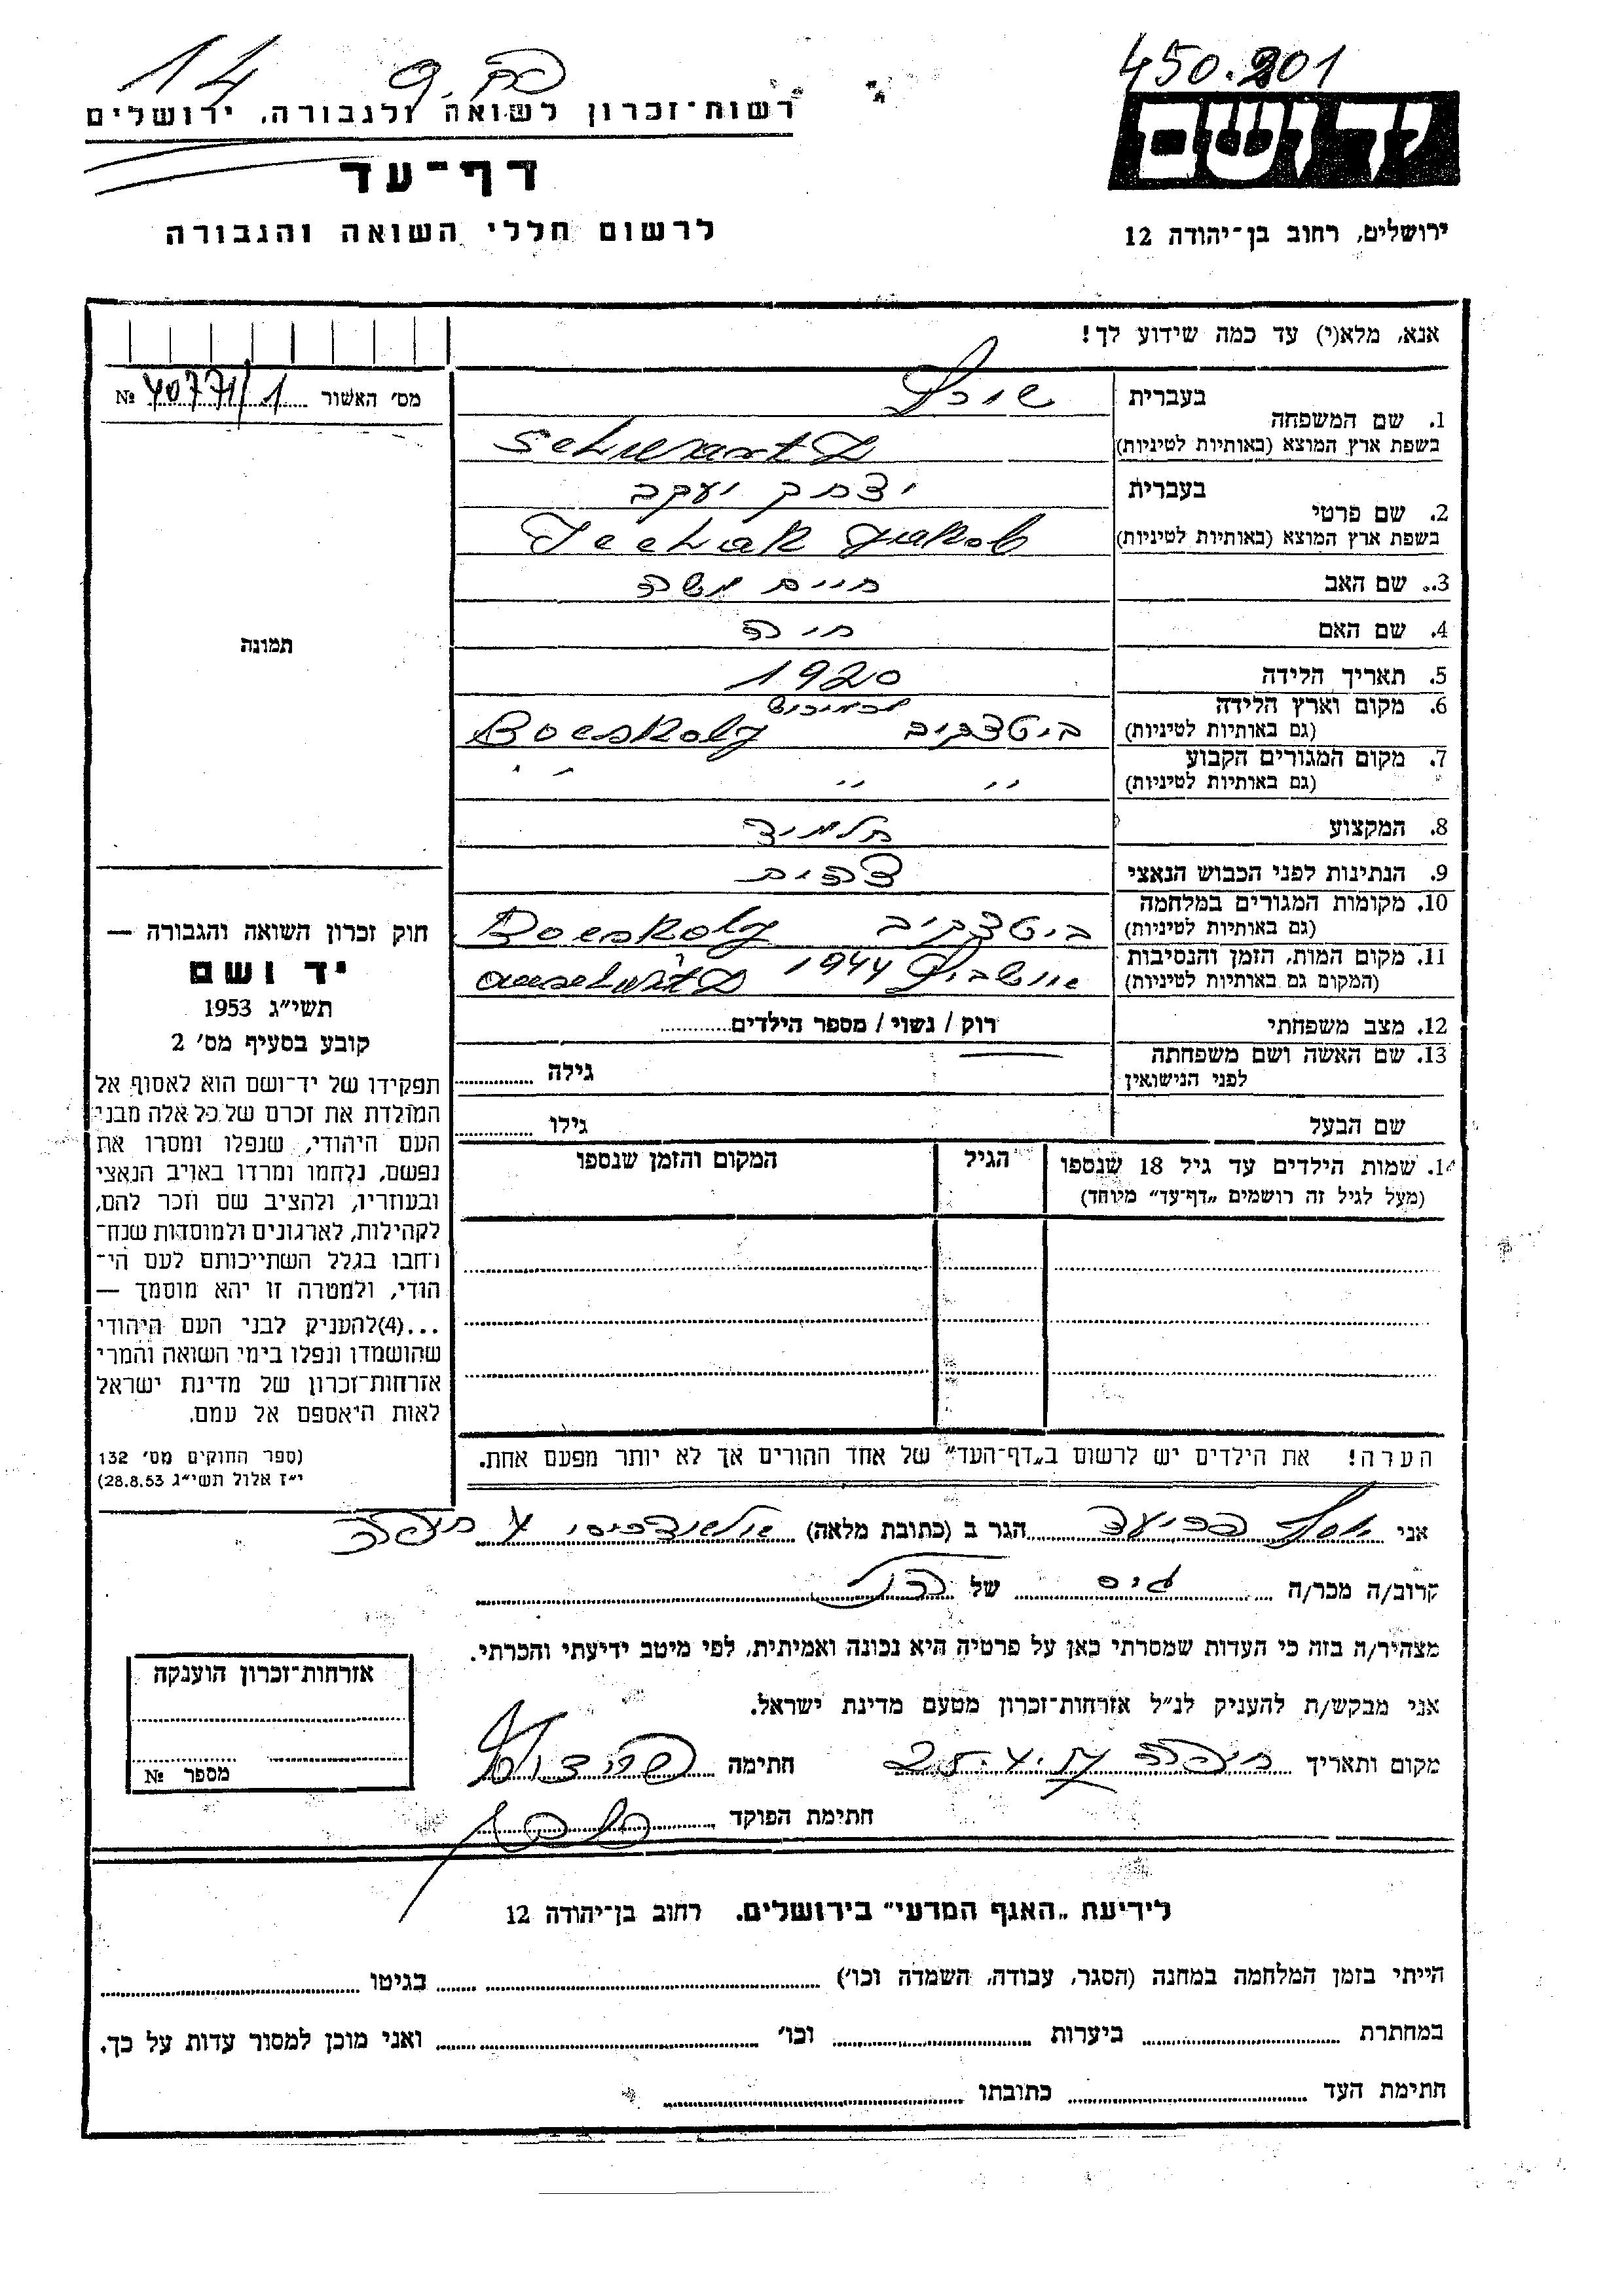 450.201
14 פה.9
רשות־זכרון לשואה ולגבורה, ירושלים
יד ושם
דף־עד
לרשום חללי השואה והגבורה
ירושלים, רחוב בן־יהודה 12
אנא, מלא(י) עד כמה שידוע לך!
מס׳ האשור 40771/1 №
תמונה
1. שם המשפחה
בעברית שורץ
בשפת ארץ המוצא (באותיות לטיניות) Schwartz
2. שם פרטי
בעברית יצחק יעקב
בשפת ארץ המוצא (באותיות לטיניות) Jechak Jakob
3. שם האב חיים משה
4. שם האם חיה
5. תאריך הלידה 1920
6. מקום וארץ הלידה
(גם באותיות לטיניות) ביטצקיב Bocskolg
7. מקום המגורים הקבוע
(גם באותיות לטיניות) ״ ״ ״
8. המקצוע תלמיד
9. הנתינות לפני הכבוש הנאצי
10. מקומות המגורים במלחמה
(גם באותיות לטיניות) ביטצקיב Bocskolg
11. מקום המות, הזמן והנסיבות
(המקום גם באותיות לטיניות) אושביץ 1944 Auschwitz
12. מצב משפחתי רווק / נשוי / מספר הילדים
13. שם האשה ושם משפחתה
לפני הנישואין גילה
שם הבעל גילו
14. שמות הילדים עד גיל 18 שנספו
(מעל לגיל זה רושמים „דף־עד״ מיוחד)
הגיל
המקום והזמן שנספו
הערה! את הילדים יש לרשום ב„דף־העד״ של אחד ההורים אך לא יותר מפעם אחת.
חוק זכרון השואה והגבורה —
יד ושם
תשי״ג 1953
קובע בסעיף מס׳ 2
תפקידו של יד־ושם הוא לאסוף אל
המולדת את זכרם של כל אלה מבני
העם היהודי, שנפלו ומסרו את
נפשם, נלחמו ומרדו באויב הנאצי
ובעוזריו, ולהציב שם וזכר להם,
לקהילות, לארגונים ולמוסדות שנח־
רחבו בגלל השתייכותם לעם הי־
הודי, ולמטרה זו יהא מוסמך —
...(4)להעניק לבני העם היהודי
שהושמדו ונפלו בימי השואה והמרי
אזרחות־זכרון של מדינת ישראל
לאות היאספם אל עמם.
(ספר החוקים מס׳ 132
י״ז אלול תשי״ג 28.8.53)
אני הגר ב (כתובת מלאה) 4 חיפה
קרוב/ה מכר/ה גיס של
מצהיר/ה בזה כי העדות שמסרתי כאן על פרטיה היא נכונה ואמיתית, לפי מיטב ידיעתי והכרתי.
אני מבקש/ת להעניק לנ״ל אזרחות־זכרון מטעם מדינת ישראל.
מקום ותאריך חיפה 25.4.57 חתימה
חתימת הפוקד
אזרחות־זכרון הוענקה
מספר №
לידיעת „האגף המדעי״ בירושלים. רחוב בן־יהודה 12
הייתי בזמן המלחמה במחנה (הסגר, עבודה, השמדה וכו׳) בגיטו
במחתרת ביערות וכו׳ ואני מוכן למסור עדות על כך.
חתימת העד כתובתו